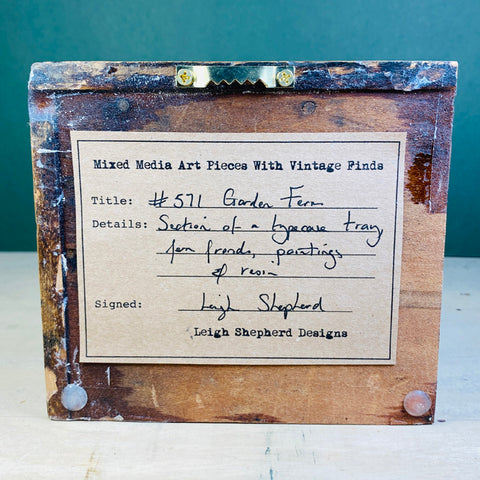 Mixed Media Art Pieces With Vintage Finds
Title: #571 Garden Fern
Details: Section of a typecase tray,
fern fronds, paintings
& resin
Signed: Leigh Shepherd
Leigh Shepherd Designs